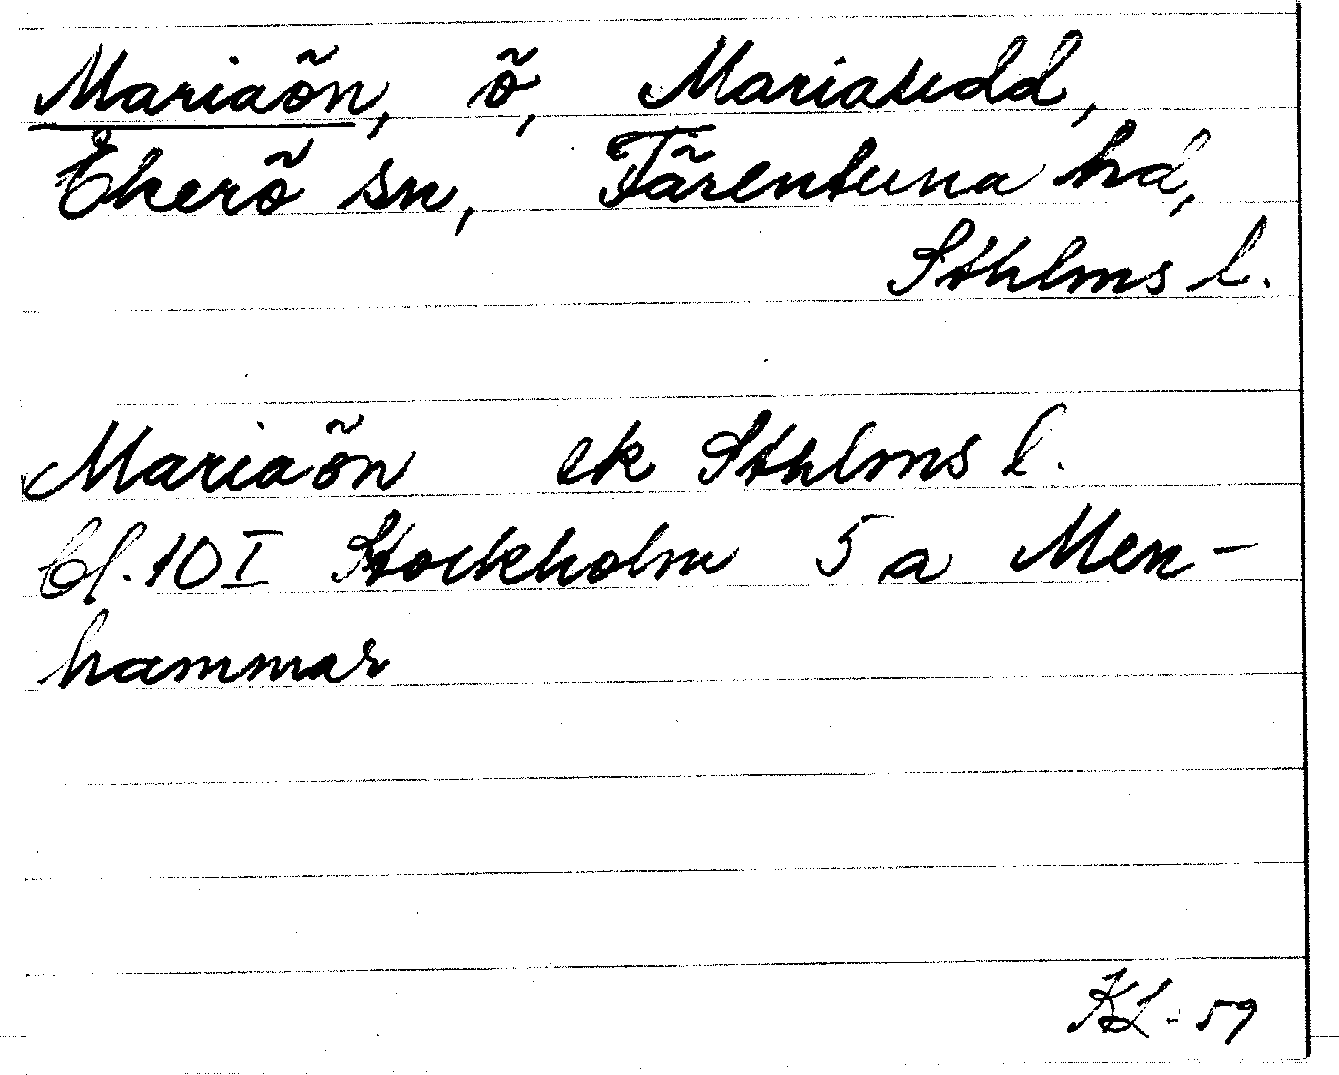 Mariaön, ö, Mariasudd,
Ekerö sn, Färentuna hd,
Sthlms l.
Mariaön ek Sthlms l.
bl. 10 I Stockholm 5 a Men-
hammar
KL - 59